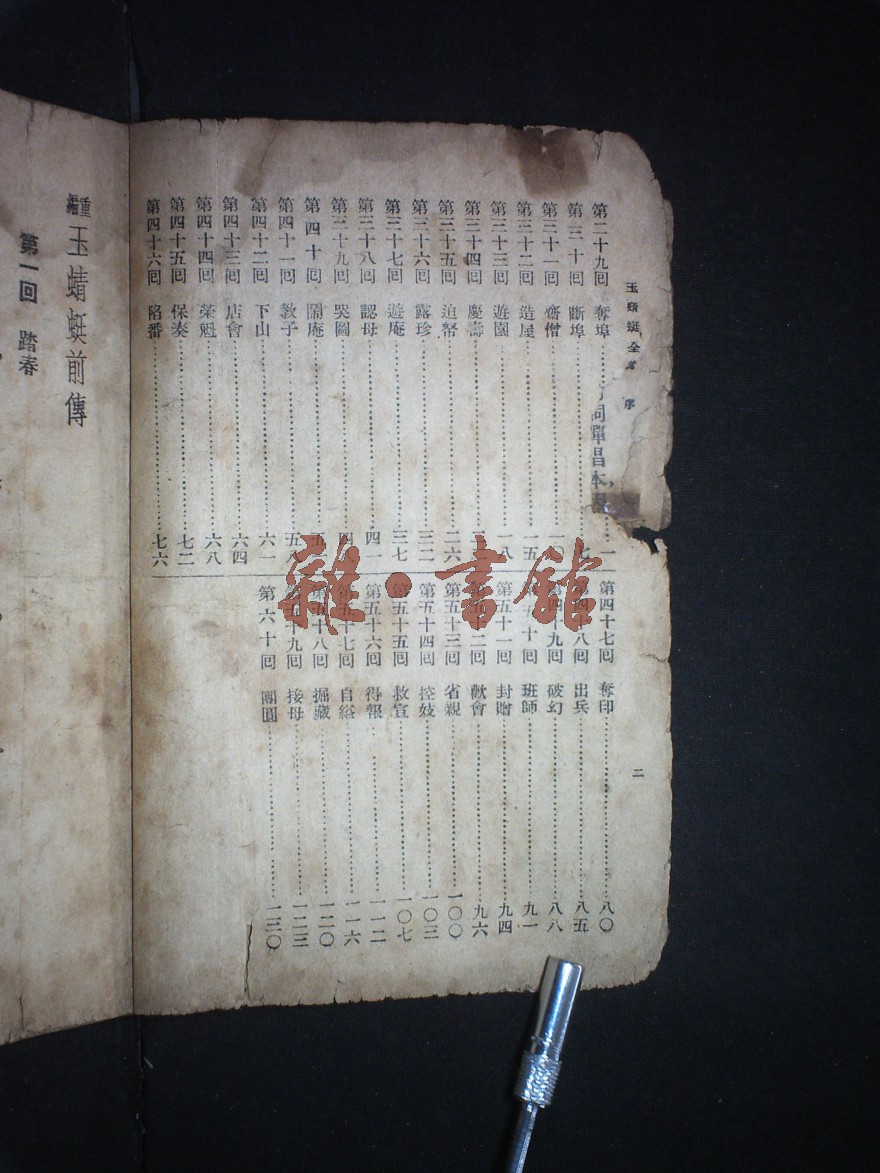 玉蜻蜓全 序
二
第二十九回 奪埠 一
第三十回 斷埠 七
第三十一回 齋僧 一〇
第三十二回 造屋 一五
第三十三回 遊園 一八
第三十四回 慶壽
第三十五回 迫帑 二六
第三十六回 露珍 三二
第三十七回 遊庵 三七
第三十八回 認母 四一
第三十九回 哭圖
第四十回 鬧庵
第四十一回 教子
第四十二回 下山 六一
第四十三回 店會 六四
第四十四回 榮魁 六八
第四十五回 保奏 七二
第四十六回 陷番 七六
第四十七回 奪印 八〇
第四十八回 出兵 八五
第四十九回 破幻 八八
第五十回 班師 九一
第五十一回 封贈 九四
第五十二回 歡會 九六
第五十三回 省親 一〇〇
第五十四回 控妓 一〇三
第五十五回 救宣 一〇七
第五十六回 得報 一一二
第五十七回 自縊 一一六
第五十八回 掘藏 一二〇
第五十九回 接母 一二三
第六十回 團圓 一三〇
詞單昌本
重編 玉蜻蜓前傳
第一回 踏春
雜·書館